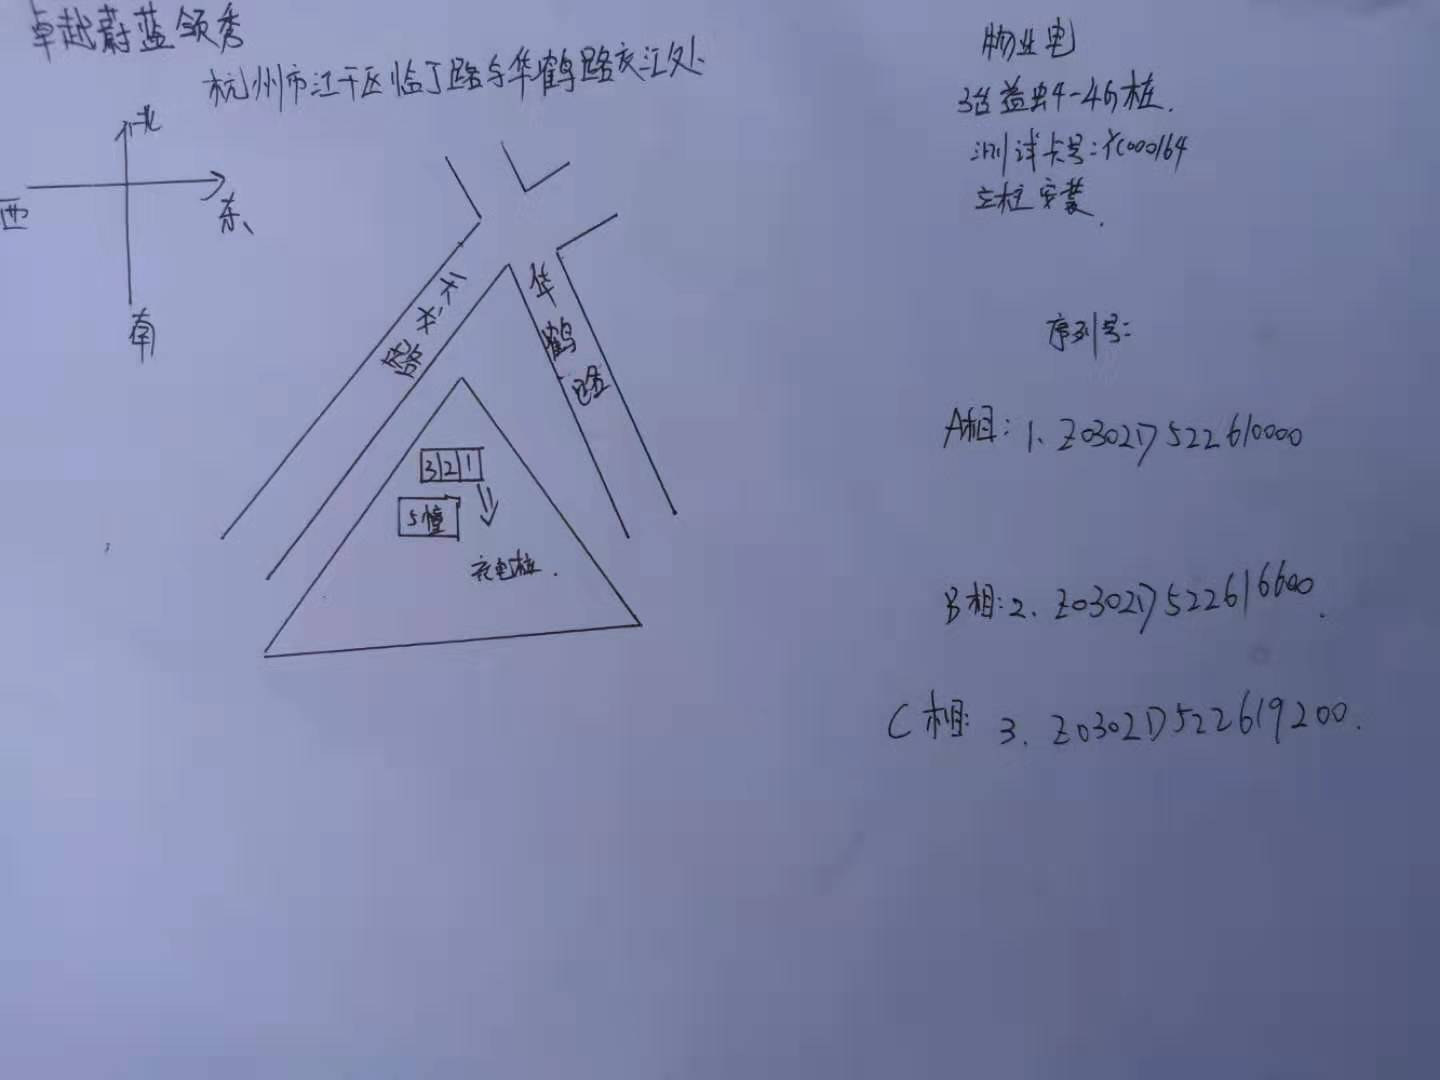 卓越蔚蓝领秀
杭州市江干区临丁路与华鹤路交汇处
北
西
东
南
路
华鹤路
3 2 1
5幢
充电桩.
物业电
3台益虫4-4G桩.
测试卡号:YC000164
立柱安装.
序列号:
A相:1、Z0302D522610000
B相:2、Z0302D522616600.
C相:3、Z0302D522619200.